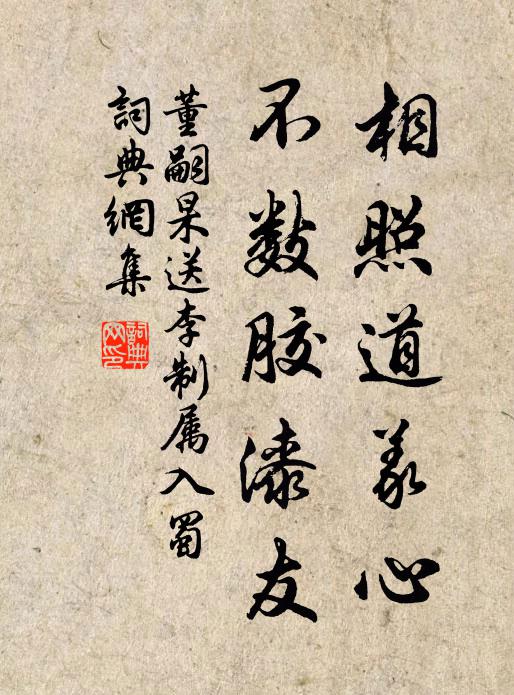 相照道義心
不數膠漆友
董嗣杲送李制属入蜀
詞典網集
詞典網印